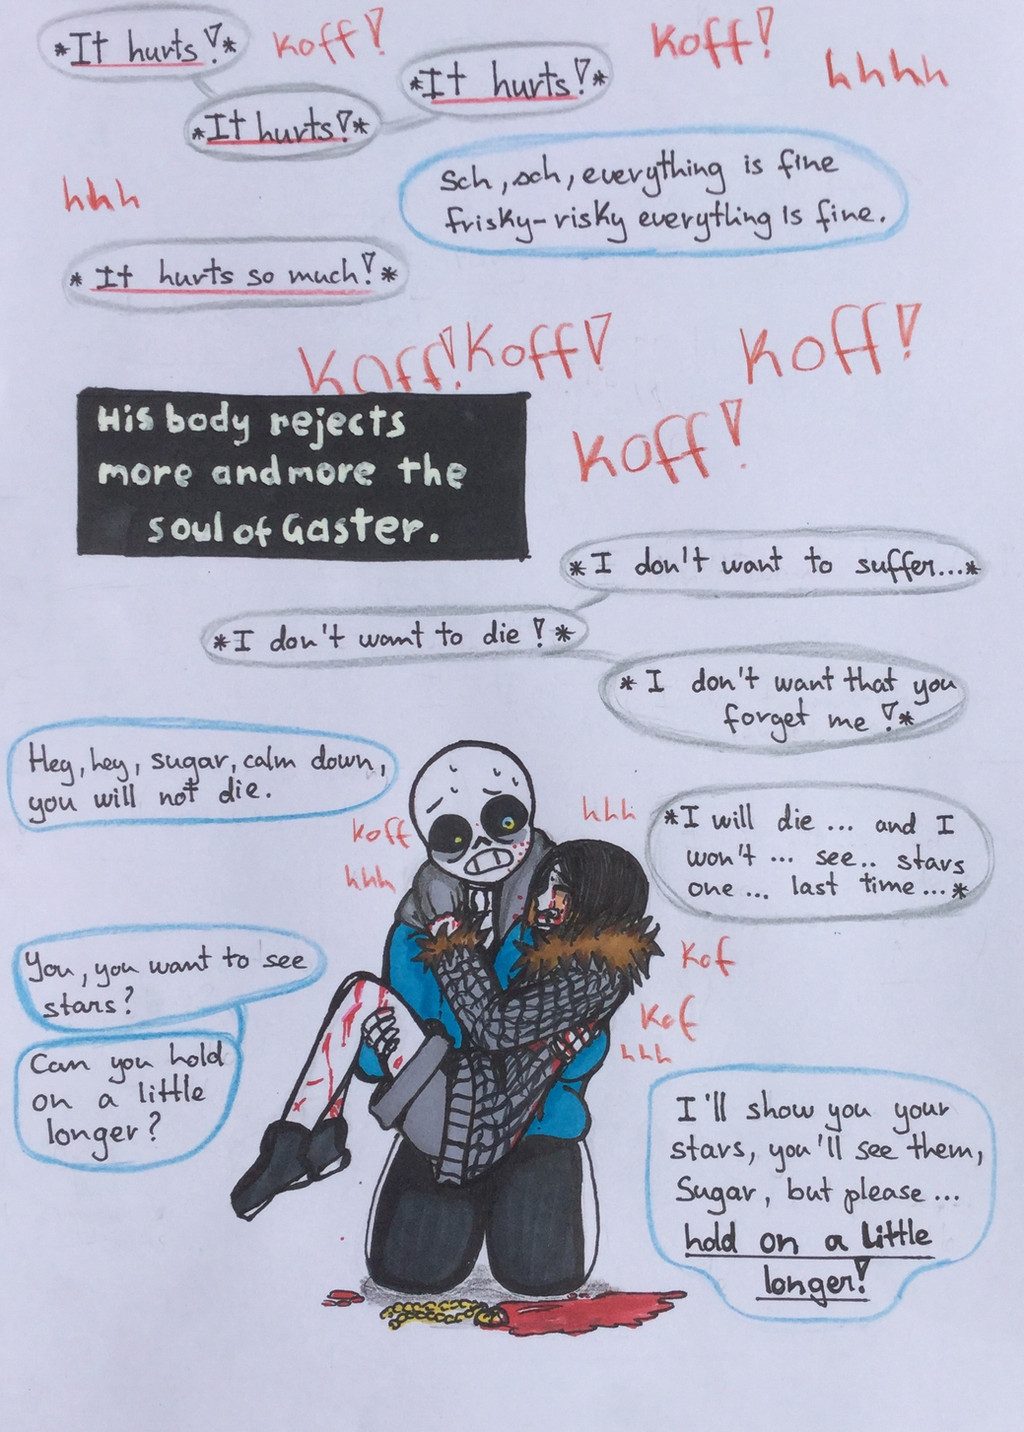 *It hurts!*
Koff!
Koff!
*It hurts!*
hhhh
*It hurts!*
Sch, sch, everything is fine
frisky-risky everything is fine.
hhh
* It hurts so much! *
Koff! Koff!
Koff!
Koff!
His body rejects
more and more the
soul of Gaster.
*I don't want to suffer...*
*I don't want to die! *
* I don't want that you
forget me!*
Hey, hey, sugar, calm down,
you will not die.
koff
hhh
hhh
*I will die ... and I
won't ... see.. stars
one ... last time ...*
You, you want to see
stars?
Can you hold
on a little
longer?
Kof
Kof
hhh
I'll show you your
stars, you'll see them,
Sugar, but please ...
hold on a little
longer!